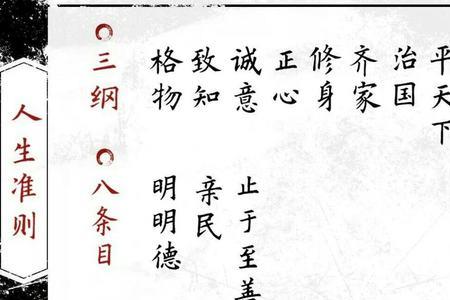 人生准则
三纲
格物
致知
诚意
正心
修身
齐家
治国
平天下
八条目
明明德
亲民
止于至善